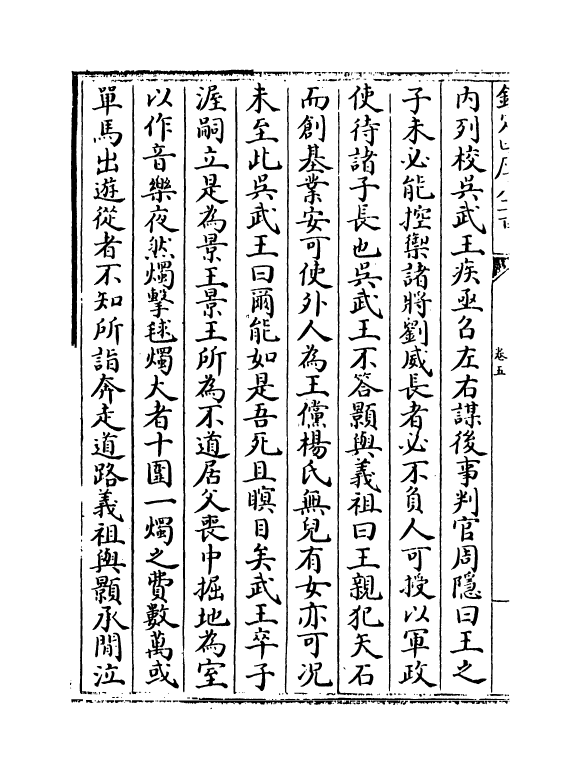 欽定四庫全書
卷五
内列校吳武王疾亟召左右謀後事判官周隱曰王之
子未必能控禦諸將劉威長者必不負人可授以軍政
使待諸子長也吳武王不答顥與義祖曰王親犯矢石
而創基業安可使外人為王儻楊氏無兒有女亦可况
未至此吳武王曰爾能如是吾死且瞑目矣武王卒子
渥嗣立是為景王景王所為不道居父喪中掘地為室
以作音樂夜然燭擊毬燭大者十圍一燭之費數萬或
單馬出遊從者不知所詣奔走道路義祖與顥承間泣